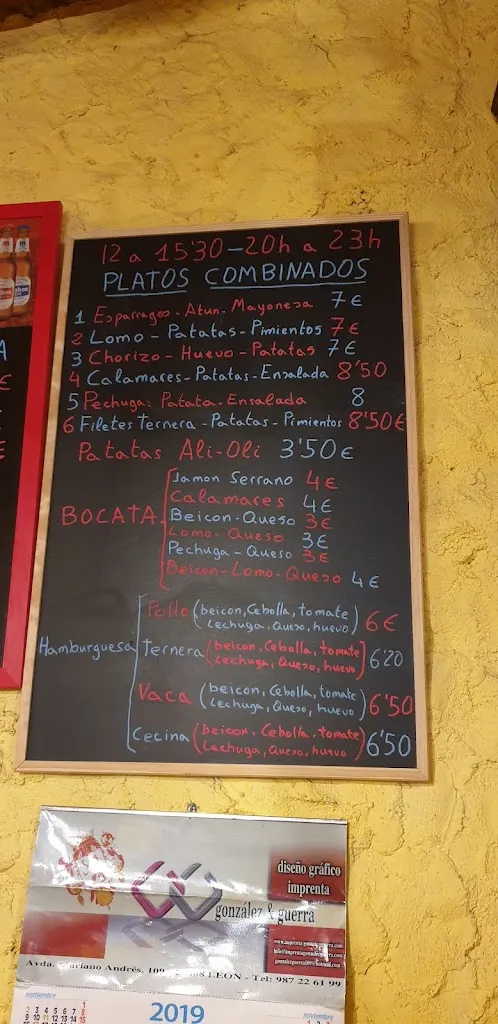 12 a 15'30 - 20h a 23h
PLATOS COMBINADOS
1 Esparragos - Atun - Mayonesa 7€
2 Lomo - Patatas - Pimientos 7€
3 Chorizo - Huevo - Patatas 7€
4 Calamares - Patatas - Ensalada 8'50
5 Pechuga: Patata - Ensalada 8
6 Filetes Ternera - Patatas - Pimientos 8'50€
Patatas Ali-Oli 3'50€
BOCATA
Jamon Serrano 4€
Calamares 4€
Beicon - Queso 3€
Lomo - Queso 3€
Pechuga - Queso 3€
Beicon - Lomo - Queso 4€
Hamburguesa
Pollo (beicon, Cebolla, tomate
Lechuga, Queso, huevo) 6€
Ternera (beicon, Cebolla, tomate
Lechuga, Queso, huevo) 6'20
Vaca (beicon, Cebolla, tomate
Lechuga, Queso, huevo) 6'50
Cecina (beicon, Cebolla, tomate
Lechuga, Queso, huevo) 6'50
diseño gráfico
imprenta
gonzález & guerra
Avda. Mariano Andrés, 109 LEON - Tel: 987 22 61 99
septiembre
2019
noviembre